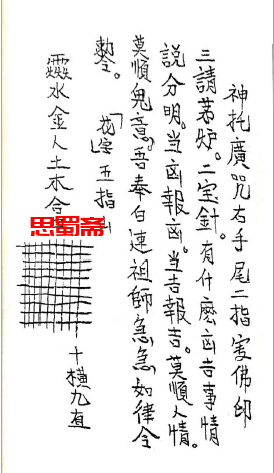 神托廣咒右手尾二指変佛印
三請茗炉。二宝針。有什麽凶吉事情
說分明。当凶報凶。当吉報吉。莫順人情。
莫順鬼意。吾奉白連祖師急急如律令
勅。「花字五指」
水金人土木合
思蜀斋
十横九直